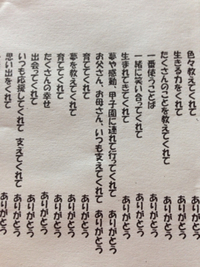 色々教えてくれて ありがとう
生きる力をくれて ありがとう
たくさんのことを教えてくれて ありがとう
一番使うことば ありがとう
一緒に笑い合ってくれて ありがとう
生まれてきてくれて ありがとう
夢や感動、甲子園に連れて行ってくれて ありがとう
お父さん、お母さん、いつも支えてくれて ありがとう
育ててくれて ありがとう
夢を教えてくれて ありがとう
育ててくれて ありがとう
たくさんの幸せ ありがとう
出会ってくれて ありがとう
いつも応援してくれて 支えてくれて ありがとう
思い出をくれて ありがとう